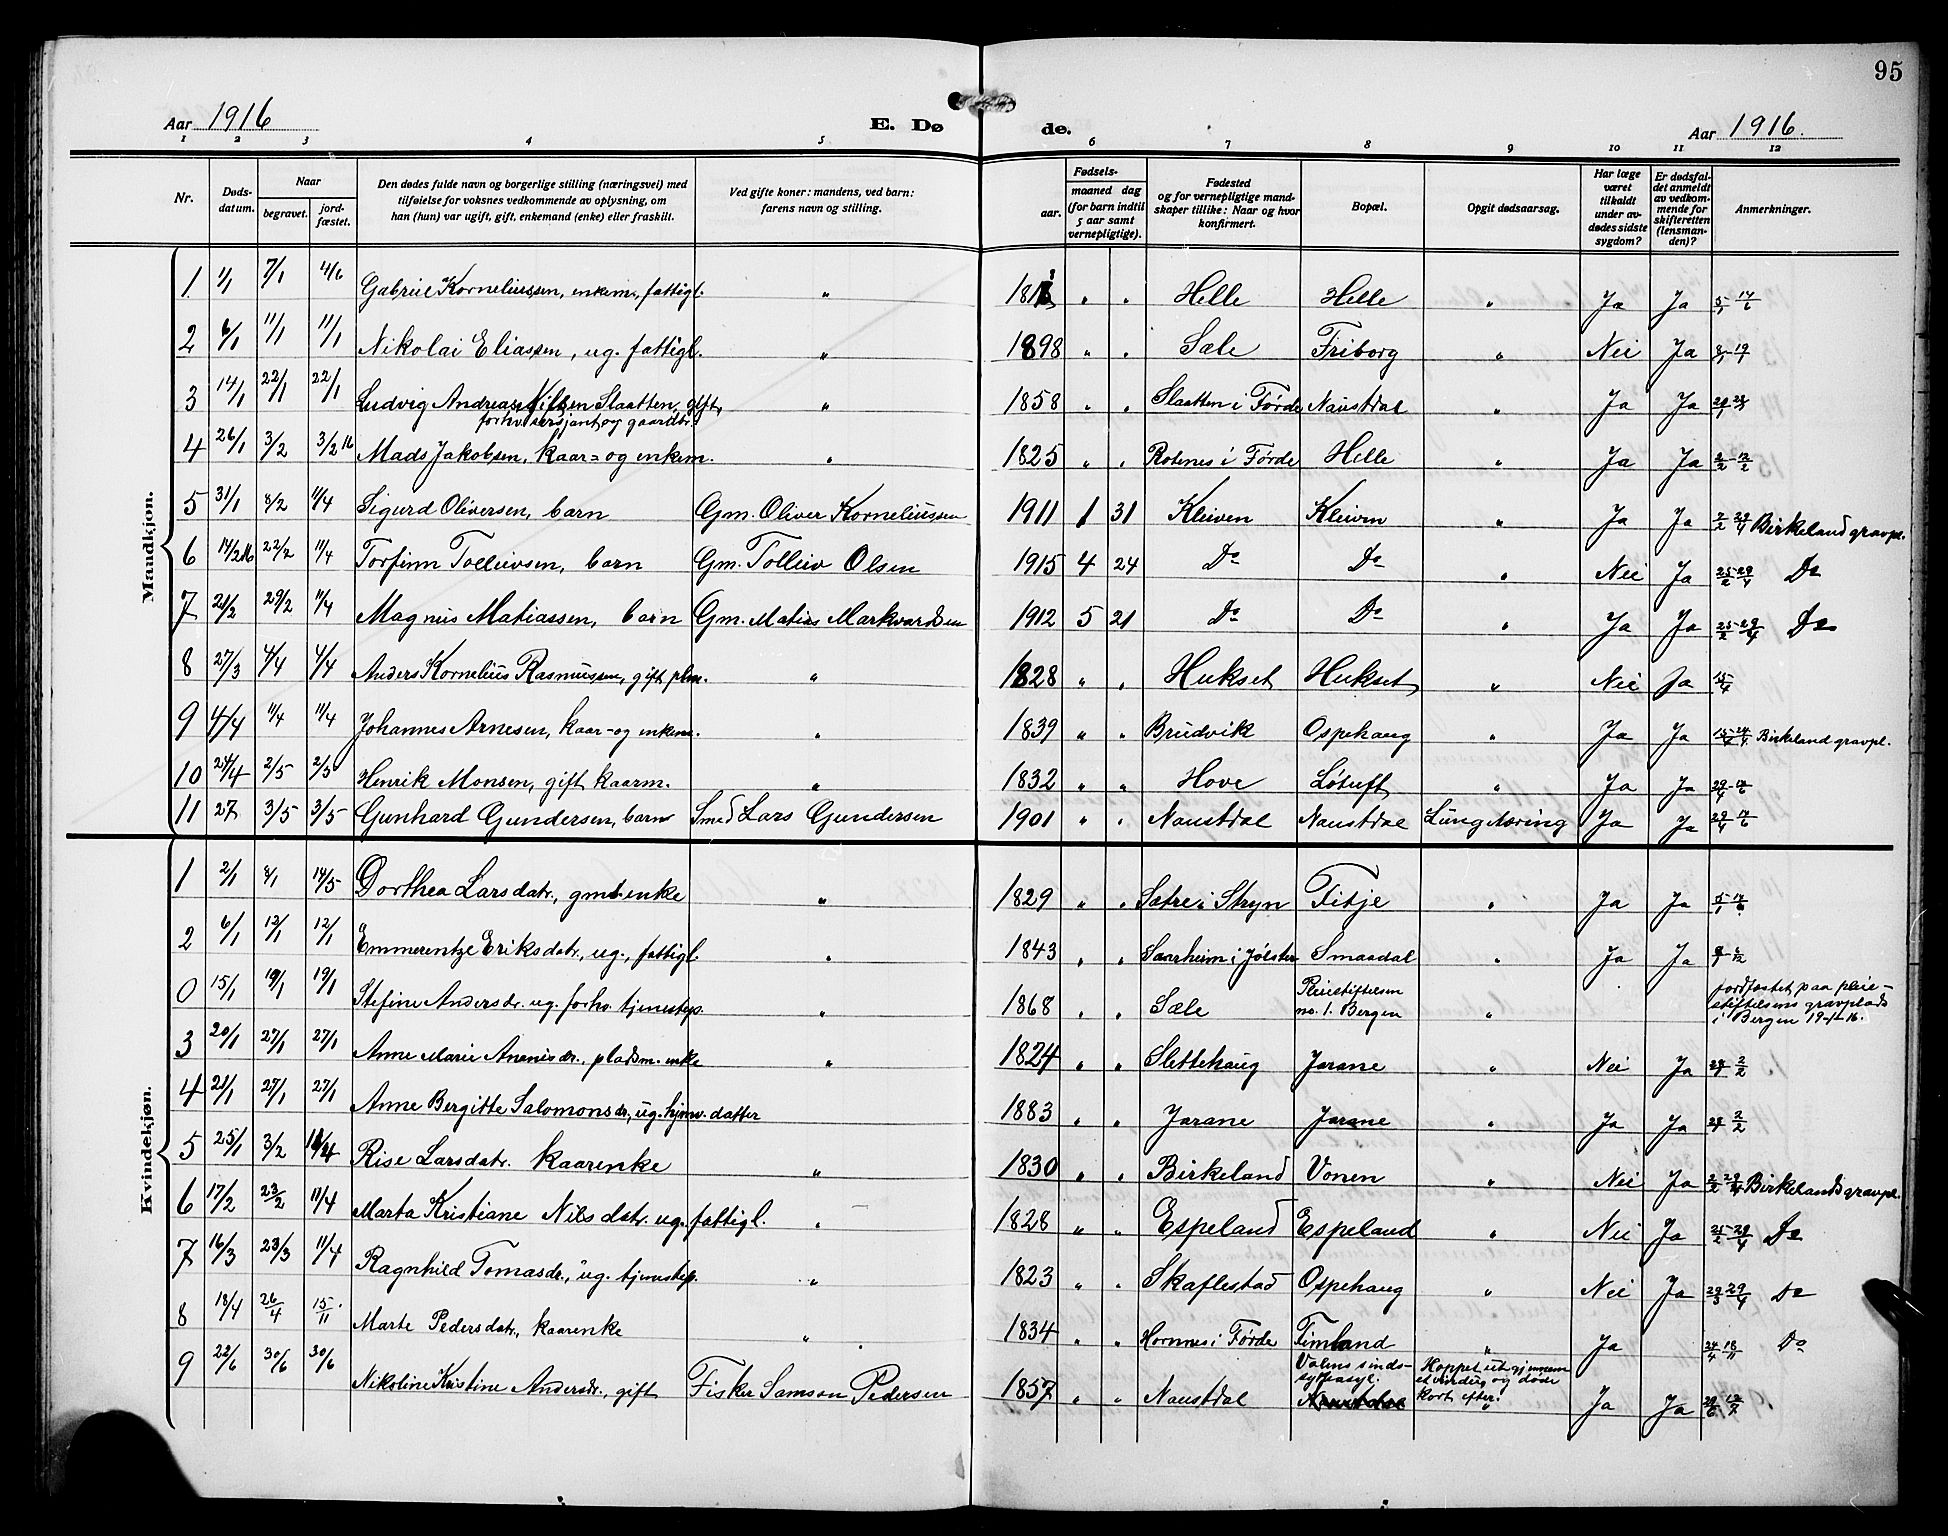 95
Aar 1916 E. Døde. Aar 1916.
1 2 3 4 5 6 7 8 9 10 11 12
Nr. | Døds-datum. | Naar begravet. | jord-fæstet. | Den dødes fulde navn og borgerlige stilling (næringsvei) med tilføielse for voksnes vedkommende av oplysning, om han (hun) var ugift, gift, enkemand (enke) eller fraskilt. | Ved gifte koner: mandens, ved barn: farens navn og stilling. | Fødsels- aar. | maaned dag (for barn indtil 5 aar samt vernepligtige). | Fødested og for vernepligtige mandskaper tillike: Naar og hvor konfirmert. | Bopæl. | Opgit dødsaarsag. | Har læge været tilkaldt under avdødes sidste sygdom? | Er dødsfaldet anmeldt av vedkommende for skifteretten (lensmanden)? | Anmerkninger.
Mandkjøn.
1 1/1 7/1 4/6 Gabriel Korneliussen, enkem., fattigl. " " " Helle Helle " Ja Ja
2 6/1 11/1 11/1 Nikolai Eliassen, ug. fattigl. " 1898 " " Sæle Friborg " Nei Ja
3 14/1 22/1 22/1 Ludvig Andreas Nilsen Slaatten, gift, forhv. sersjant og gaardbr. " 1858 " " Slaatten i Førde Naustdal " Ja Ja
4 26/1 3/2 3/2 16 Mads Jakobsen, kaar- og enkem. " 1825 " " Rotenes i Førde Helle " Ja Ja 2/2-12/2
5 31/1 8/2 11/4 Sigurd Oliversen, barn Gm. Oliver Korneliussen 1911 1 31 Kleiven Kleiven " Ja Ja 2/2-29/4 Birkeland gravpl.
6 14/2 16 22/2 11/4 Torfinn Tolleivsen, barn Gm. Tolleiv Olsen 1915 4 24 Do Do " Nei Ja 25/2-29/4 Do
7 21/2 29/2 11/4 Magnus Matiassen, barn Gm. Matias Markvardsen 1912 5 21 Do Do " Ja Ja 25/2-29/4 Do
8 27/3 4/4 4/4 Anders Kornelius Rasmussen, gift plm. " 1828 " " Hukset Hukset " Nei Ja 15/4
9 4/4 11/4 11/4 Johannes Arnesen, kaar- og enkem. " 1839 " " Brudvik Ospehaug " Ja Ja Birkeland gravpl.
10 24/4 2/5 2/5 Henrik Monsen, gift kaarm. " 1832 " " Hove Løtuft " Ja Ja
11 27 3/5 3/5 Gunhard Gundersen, barn Smed Lars Gundersen 1901 " " Naustdal Naustdal Lungetæring Ja Ja
Kvindekjøn.
1 2/1 8/1 14/5 Dorthea Larsdatr., gmb. enke " 1829 " " Sætre i Stryn Fitje " Ja Ja
2 6/1 12/1 12/1 Emmerentze Eriksdatr., ug., fattigl. " 1843 " " Saarheim i Jølster Smaadal " Ja Ja
0 15/1 19/1 19/1 Stefine Andersdr. ug. forhv. tjenestep. " 1868 " " Sæle Pleiestiftelsen no. 1. Bergen " Jordfæstet paa pleiestiftelsens gravplads i Bergen 19-1-16.
3 20/1 27/1 27/1 Anne Marie Ananisdr., pladsm. enke " 1824 " " Slettehaug Jarane " Nei Ja
4 21/1 27/1 27/1 Anne Bergitte Salomonsdr, ug. hjmv. datter 1883 " " Jarane Jarane " Ja Ja
5 25/1 3/2 11/4 Rise Larsdatr. kaarenke " 1830 " " Birkeland Vonen " Nei Ja 2/2-29/4 Birkelands gravpl.
6 17/2 23/2 11/4 Marta Kristiane Nilsdatr. ug. fattigl. " 1828 " " Espeland Espeland " Nei Ja 25/2-29/4 Do
7 16/3 23/3 11/4 Ragnhild Tomasdr., ug. tjenestep. " 1823 " " Skaflestad Ospehaug " Nei Ja 29/3 29/4 Do
8 18/4 26/4 15/11 Marte Pedersdatr., kaarenke " 1834 " " Hornnes i Førde Timland " Ja 24/4 18/11 Do
9 22/6 30/6 30/6 Nikoline Kristine Andersdr., gift Fisker Samson Pedersen 1857 " " Naustdal Valens sindssykeasyl. Naustdal Hoppet ut gjennem et vindug og døde kort efter. " Ja Ja